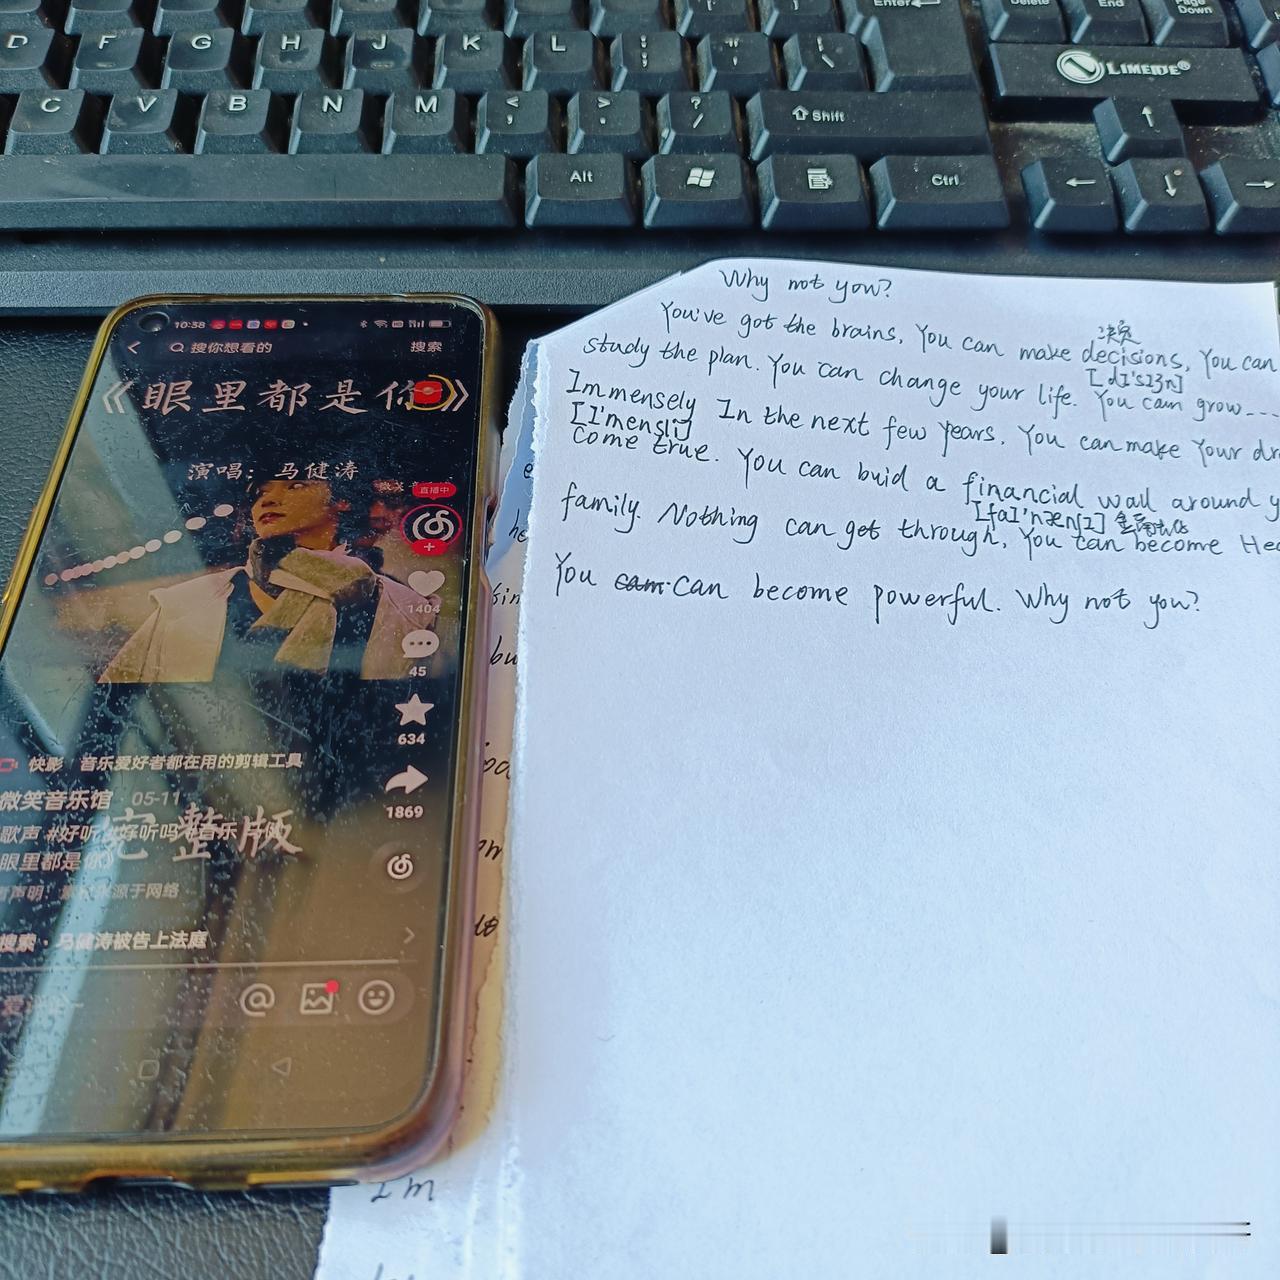 D F G H J K L : ; " ' | \ Enter Delete End Page Down
C V B N M < , > . ? / Shift LIMEIDE®
Alt Ctrl
10:38
搜你想看的 搜索
《眼里都是你》
演唱：马健涛
直播中
1404
45
634
1869
快影 音乐爱好者都在用的剪辑工具
微笑音乐馆 · 05-11
完整版
歌声 #好听 #好听吗 #音乐
眼里都是你
源于网络
搜索 · 马健涛被告上法庭
Why not you?
You've got the brains, You can make decisions, You can
决定
[dI'sIʒn]
study the plan. You can change your life. You can grow---
Immensely In the next few years, You can make Your dre
[I'menslI]
come true. You can buid a financial wall around y
[faI'nænʃl]
family. Nothing can get through, You can become Hea
You can can become powerful. Why not you?
I'm